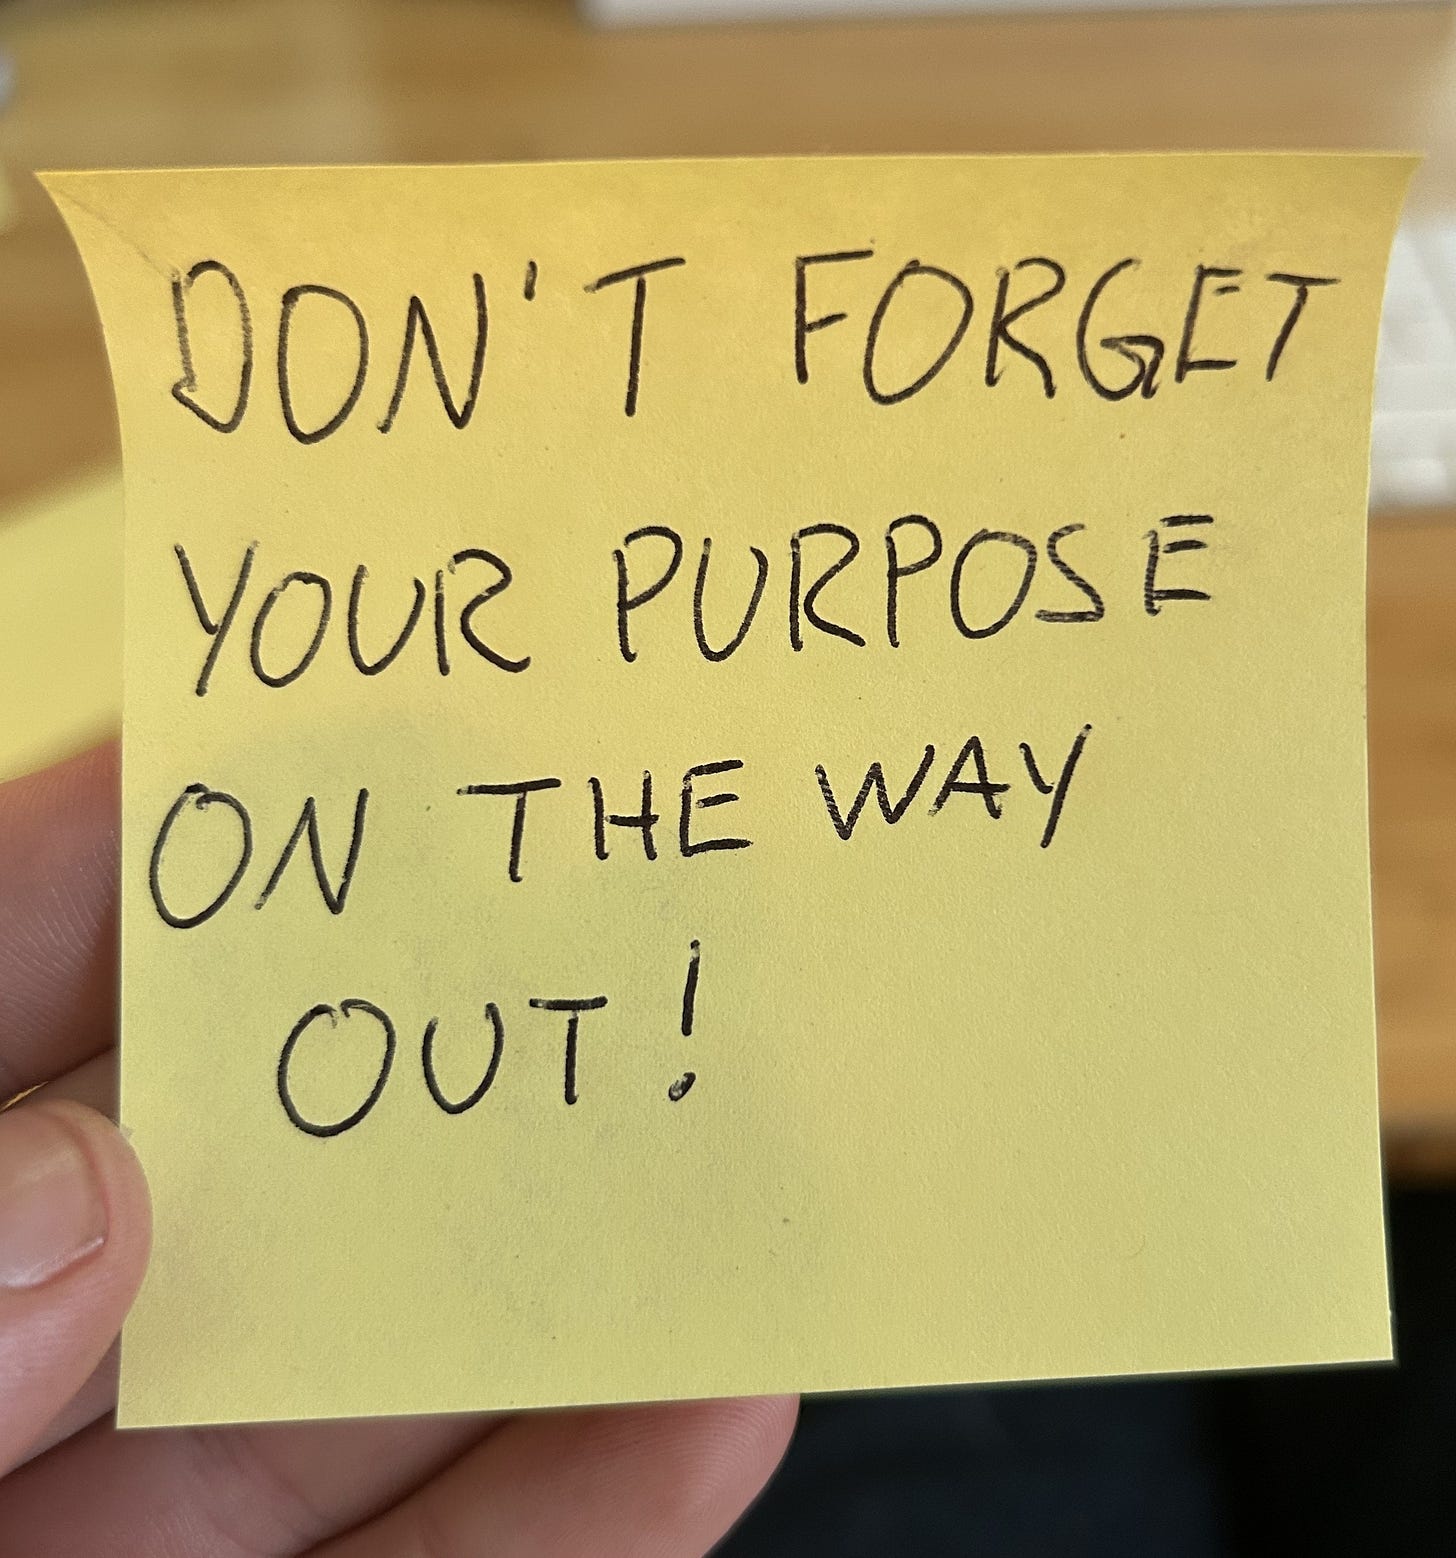 DON'T FORGET
YOUR PURPOSE
ON THE WAY
OUT!